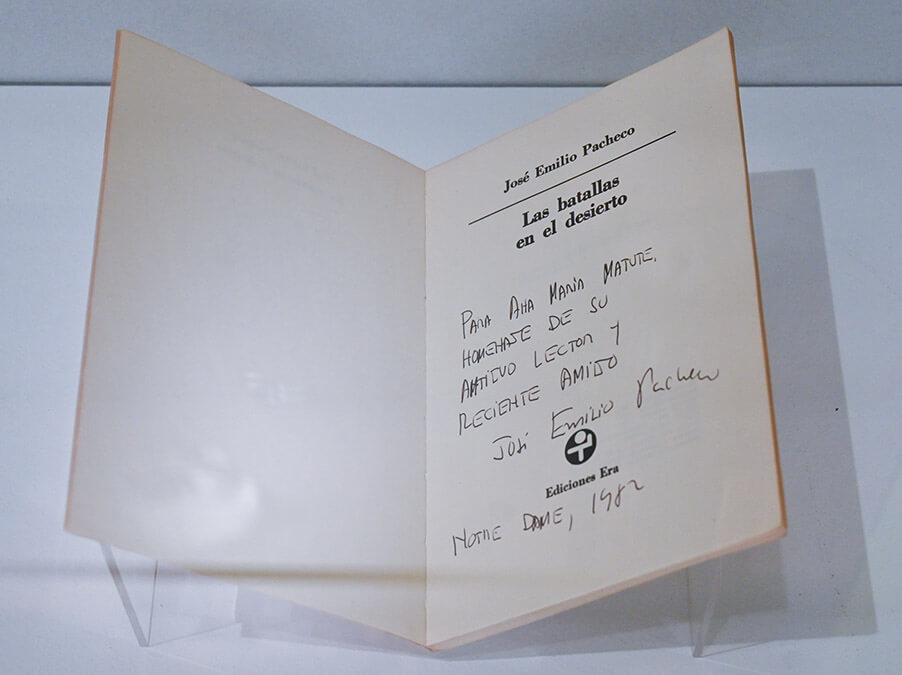 José Emilio Pacheco
Las batallas
en el desierto
PARA ANA MARÍA MATUTE,
HOMENAJE DE SU
ANTIGUO LECTOR Y
RECIENTE AMIGO
JOSÉ EMILIO Pacheco
Ediciones Era
NOTRE DAME, 1982